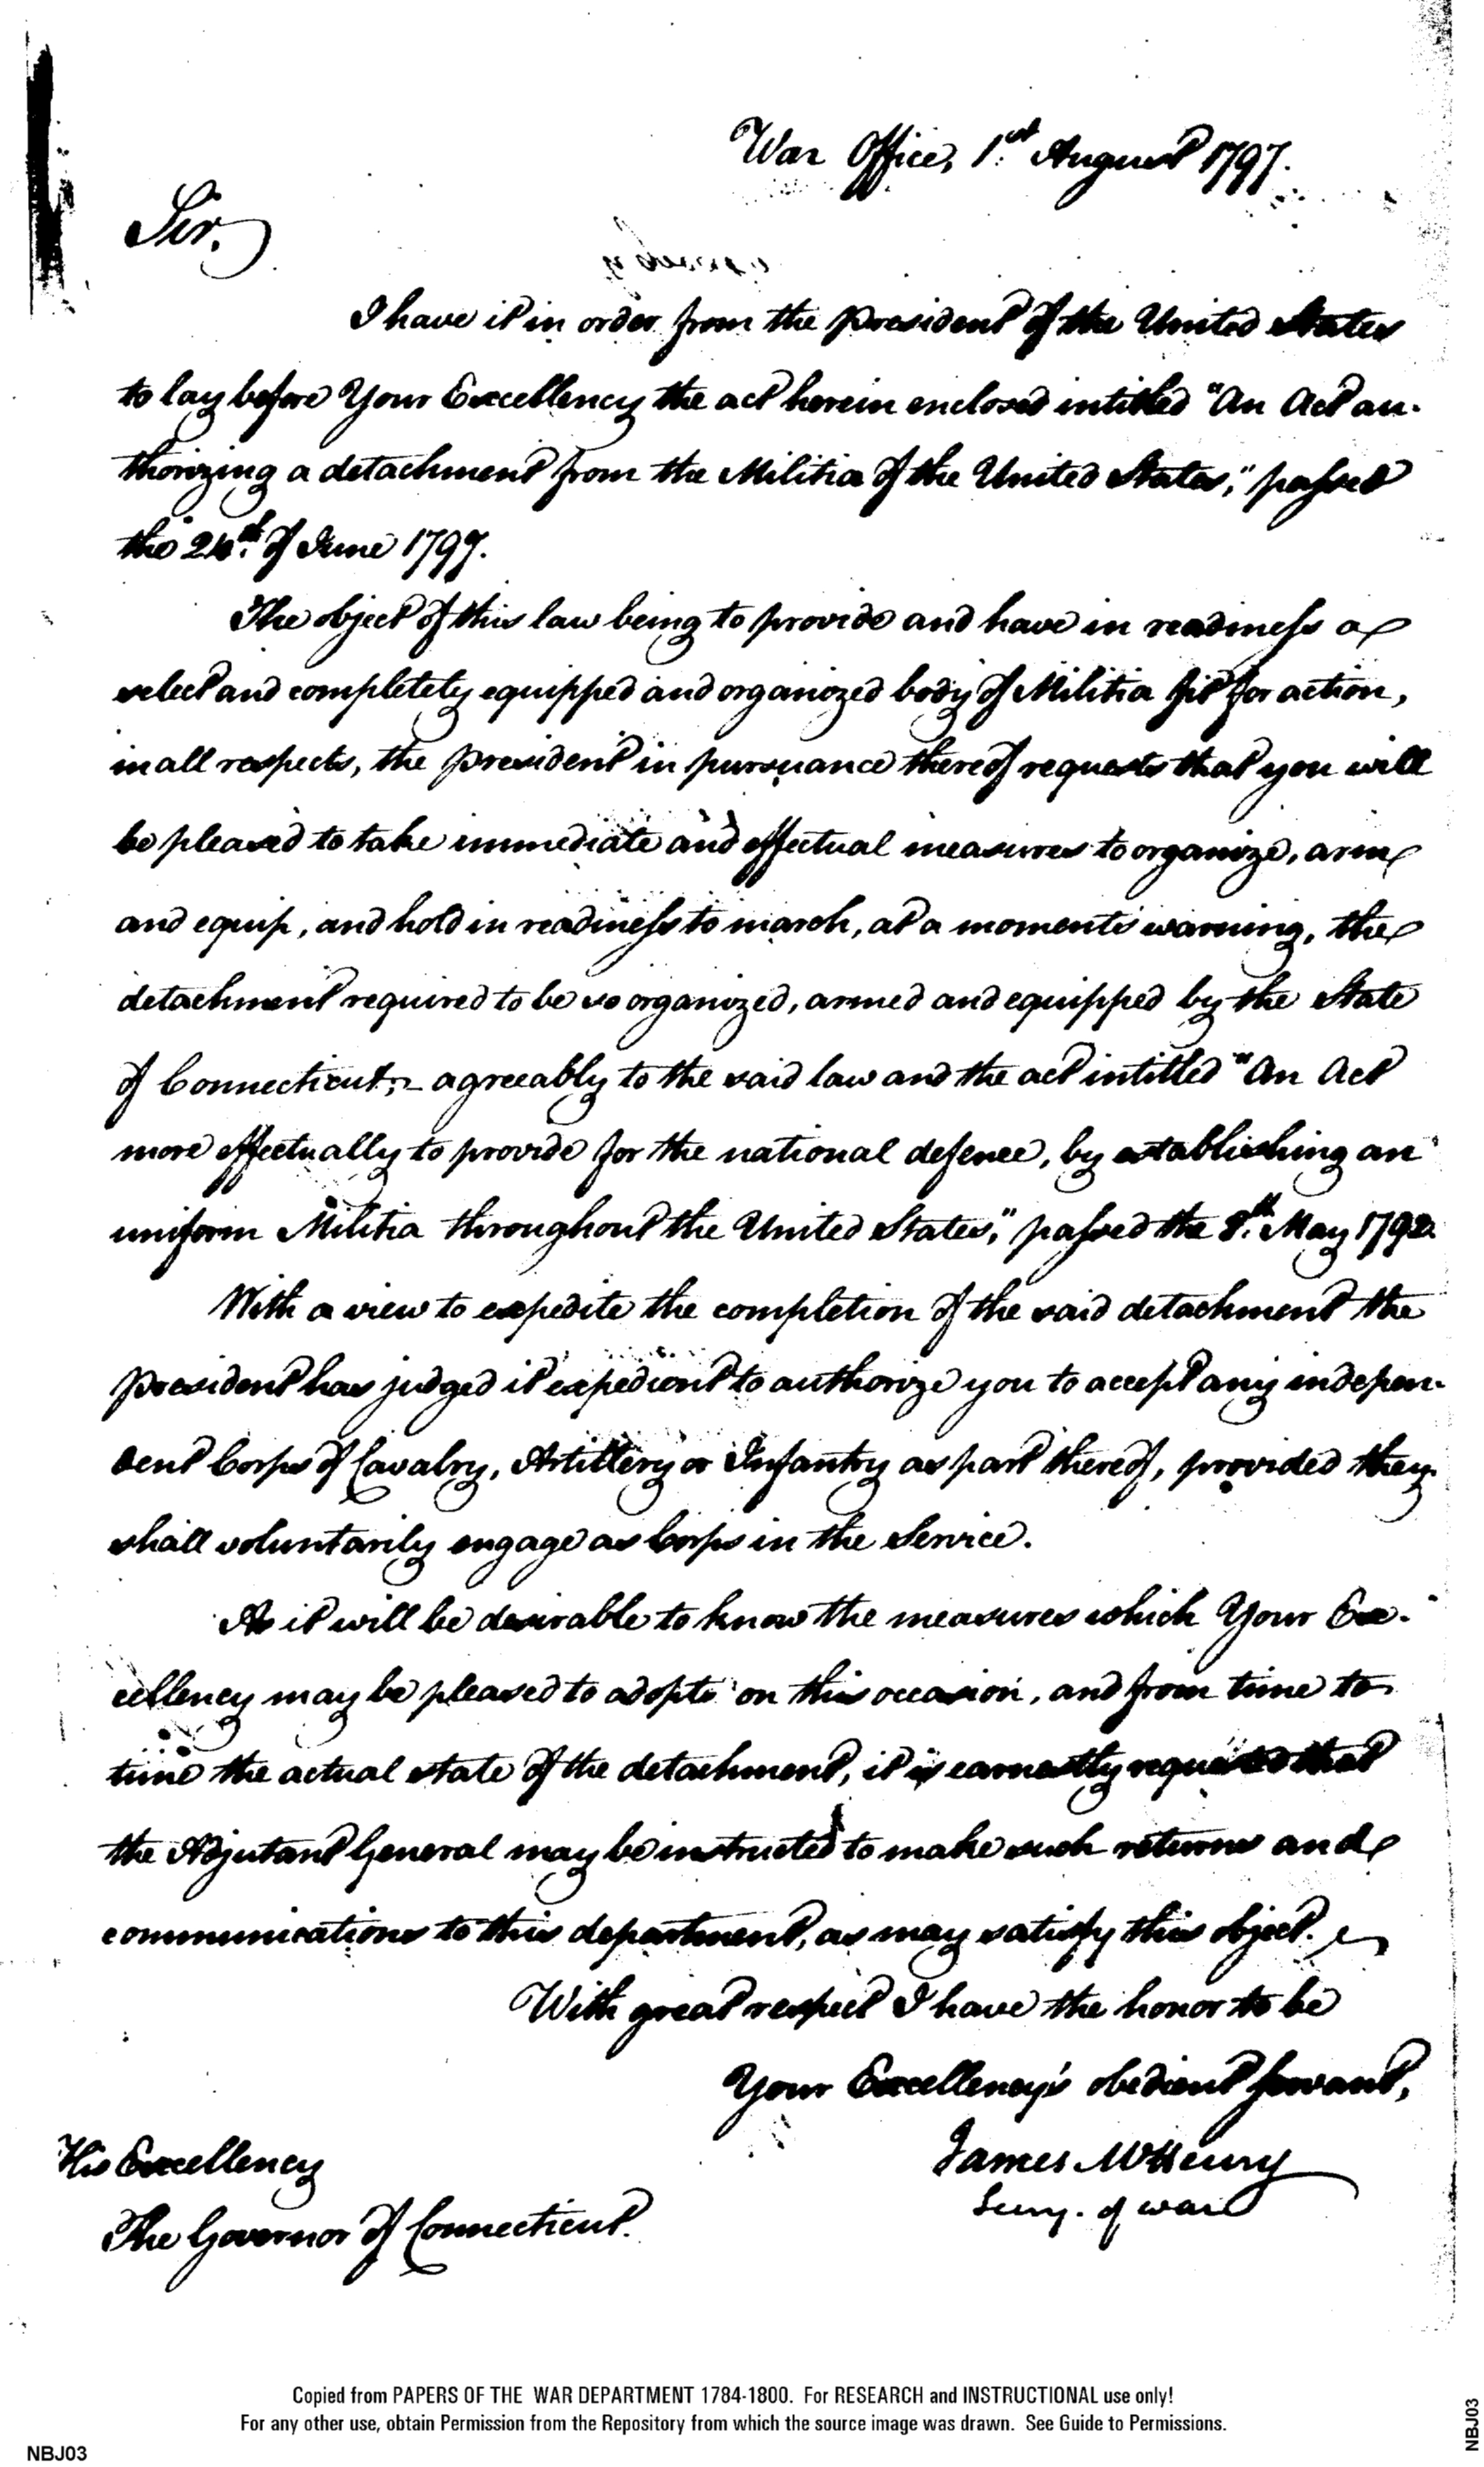 War Office, 1.st August 1797.
Sir,
I have it in order from the President of the United States
to lay before Your Excellency the act herein enclosed intitled "An Act au-
thorizing a detachment from the Militia of the United States," passed
the 24th. of June 1797.
The object of this law being to provide and have in readiness a
select and completely equipped and organized body of Militia fit for action,
in all respects, the President in pursuance thereof requests that you will
be pleased to take immediate and effectual measures to organize, arm
and equip, and hold in readiness to march, at a moments warning, the
detachment required to be so organized, armed and equipped by the State
of Connecticut,- agreeably to the said law and the act intitled "An Act
more effectually to provide for the national defence, by establishing an
uniform Militia throughout the United States," passed the 8.th May 1792.
With a view to expedite the completion of the said detachment the
President has judged it expedient to authorize you to accept any indepen-
dent Corps of Cavalry, Artillery or Infantry as part thereof, provided they
shall voluntarily engage as Corps in the Service.
As it will be desirable to know the measures which Your Ex-
cellency may be pleased to adopt on this occasion, and from time to
time the actual state of the detachment, it is earnestly requested that
the Adjutant General may be instructed to make such returns and
communications to this department, as may satisfy this object.
With great respect I have the honor to be
Your Excellency's obedient servant,
James McHenry
Secry. of war
His Excellency
The Governor of Connecticut.
Copied from PAPERS OF THE WAR DEPARTMENT 1784-1800. For RESEARCH and INSTRUCTIONAL use only!
For any other use, obtain Permission from the Repository from which the source image was drawn. See Guide to Permissions.
NBJ03
NBJ03